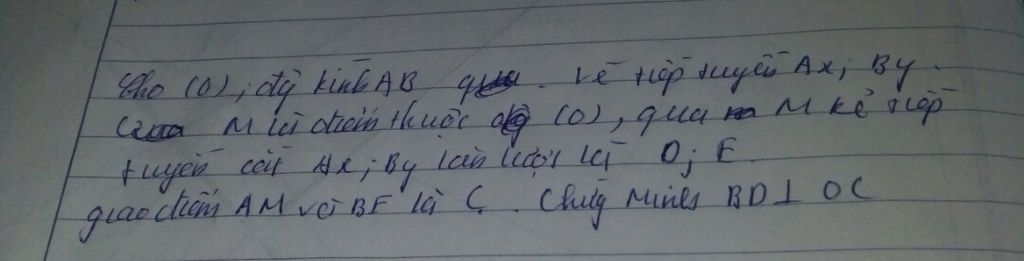 Cho (O), đg kính AB. Vẽ tiếp tuyến Ax; By.
M là điểm thuộc (O), qua M kẻ tiếp
tuyến cắt Ax; By lần lượt là D; E.
giao điểm AM với BE là C. Chứng Minh BD ⊥ OC